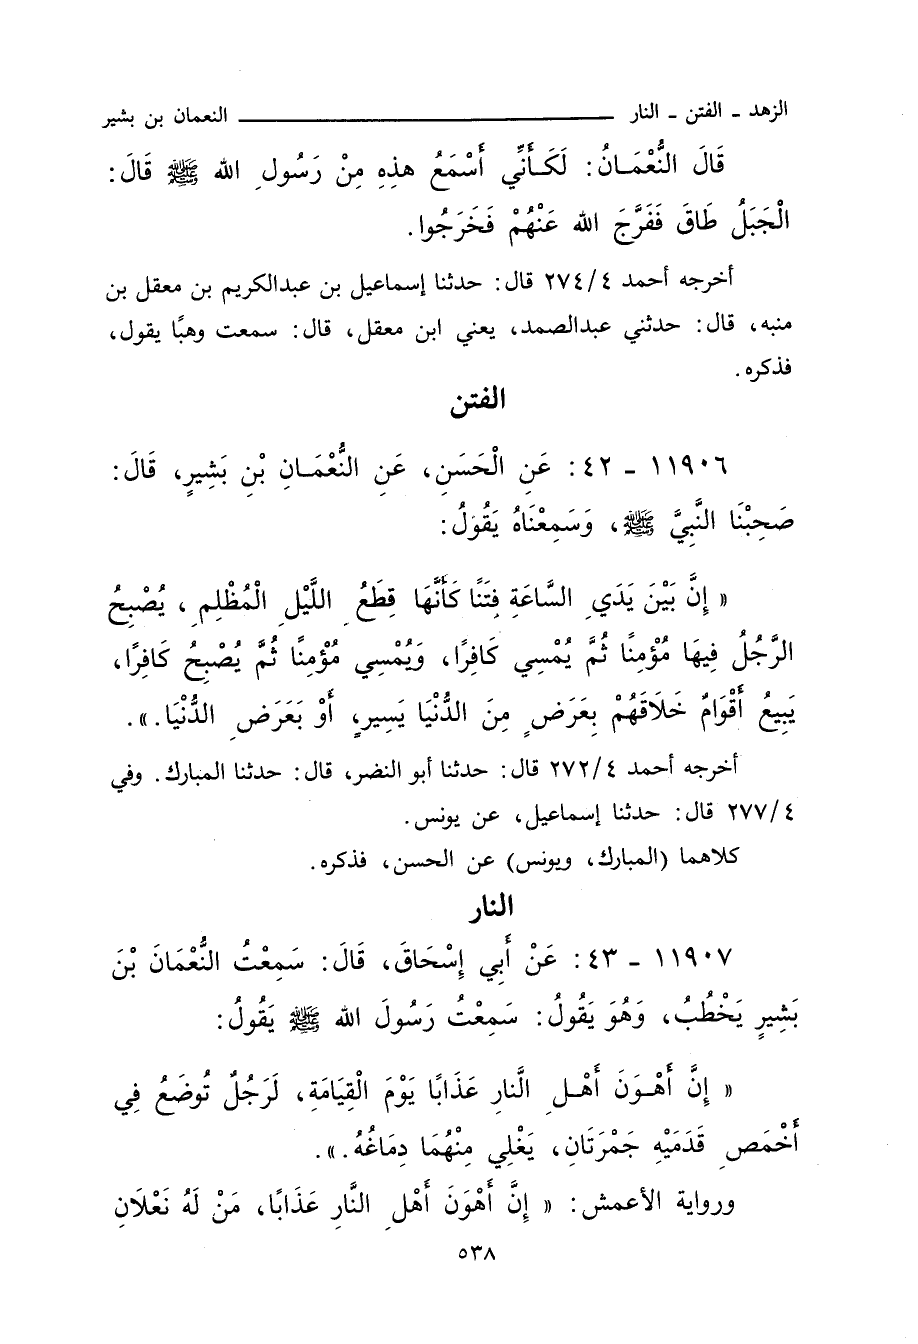 الزهد ـ الفتن ـ النار ــــــــــــــــــــــــ النعمان بن بشير
قَالَ النُّعْمَـانُ: لَكَـأَنِّي أَسْمَعُ هذِهِ مِنْ رَسُولِ الله ﷺ قَالَ:
الْجَبَلُ طَاقَ فَفَرَّجَ الله عَنْهُمْ فَخَرَجُوا.
أخرجه أحمد ٤/ ٢٧٤ قال: حدثنا إسماعيل بن عبدالكريم بن معقل بن
منبه، قال: حدثني عبدالصمد، يعني ابن معقل، قال: سمعت وهبًا يقول،
فذكره.
الفتن
١١٩٠٦ ـ ٤٢: عَنِ الْحَسَنِ، عَنِ النُّعْمَـانِ بْنِ بَشِيرٍ، قَالَ:
صَحِبْنَا النَّبِيَّ ﷺ، وَسَمِعْنَاهُ يَقُولُ:
« إِنَّ بَيْنَ يَدَيِ السَّاعَةِ فِتَنًا كَأَنَّهَا قِطَعُ اللَّيْلِ الْمُظْلِمِ، يُصْبِحُ
الرَّجُلُ فِيهَا مُؤْمِنًا ثُمَّ يُمْسِي كَافِرًا، وَيُمْسِي مُؤْمِنًا ثُمَّ يُصْبِحُ كَافِرًا،
يَبِيعُ أَقْوَامٌ خَلَاقَهُمْ بِعَرَضٍ مِنَ الدُّنْيَا يَسِيرٍ، أَوْ بَعَرَضِ الدُّنْيَا.».
أخرجه أحمد ٤/ ٢٧٢ قال: حدثنا أبو النضر، قال: حدثنا المبارك. وفي
٤/ ٢٧٧ قال: حدثنا إسماعيل، عن يونس.
كلاهما (المبارك، ويونس) عن الحسن، فذكره.
النار
١١٩٠٧ ـ ٤٣: عَنْ أَبِي إِسْحَاقَ، قَالَ: سَمِعْتُ النُّعْمَانَ بْنَ
بَشِيرٍ يَخْطُبُ، وَهُوَ يَقُولُ: سَمِعْتُ رَسُولَ الله ﷺ يَقُولُ:
« إِنَّ أَهْـوَنَ أَهْـلِ النَّارِ عَذَابًا يَوْمَ الْقِيَامَةِ، لَرَجُلٌ تُوضَعُ فِي
أَخْمَصِ قَدَمَيْهِ جَمْرَتَانِ، يَغْلِي مِنْهُمَا دِمَاغُهُ.».
ورواية الأعمش: « إِنَّ أَهْوَنَ أَهْلِ النَّارِ عَذَابًا، مَنْ لَهُ نَعْلَانِ
٥٣٨